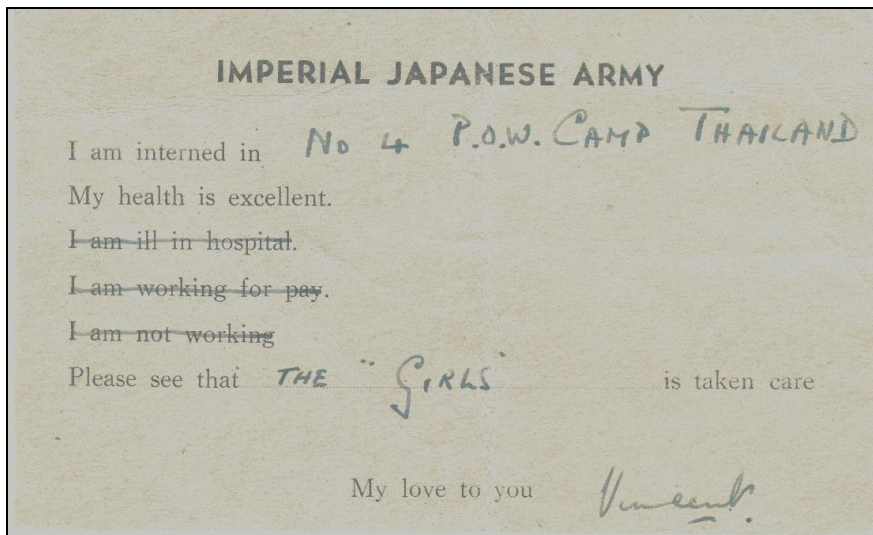 IMPERIAL JAPANESE ARMY
I am interned in No 4 P.O.W. CAMP THAILAND
My health is excellent.
I am ill in hospital.
I am working for pay.
I am not working
Please see that THE "GIRLS" is taken care
My love to you Vincent.